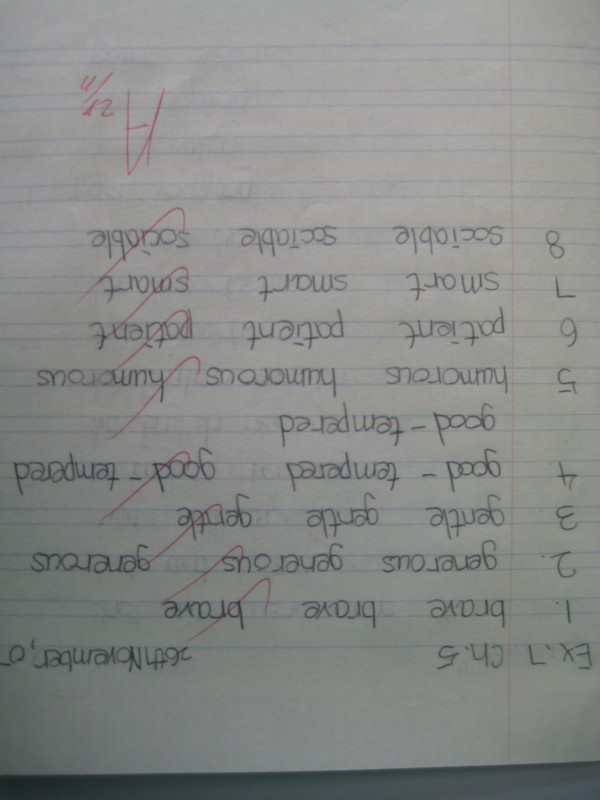 Ex.7 Ch.5 26th November, 0
1. brave brave brave
2. generous generous generous
3 gentle gentle gentle
4. good-tempered good-tempered
good-tempered
5 humorous humorous humorous
6 patient patient patient
7 smart smart smart
8 sociable sociable sociable
A